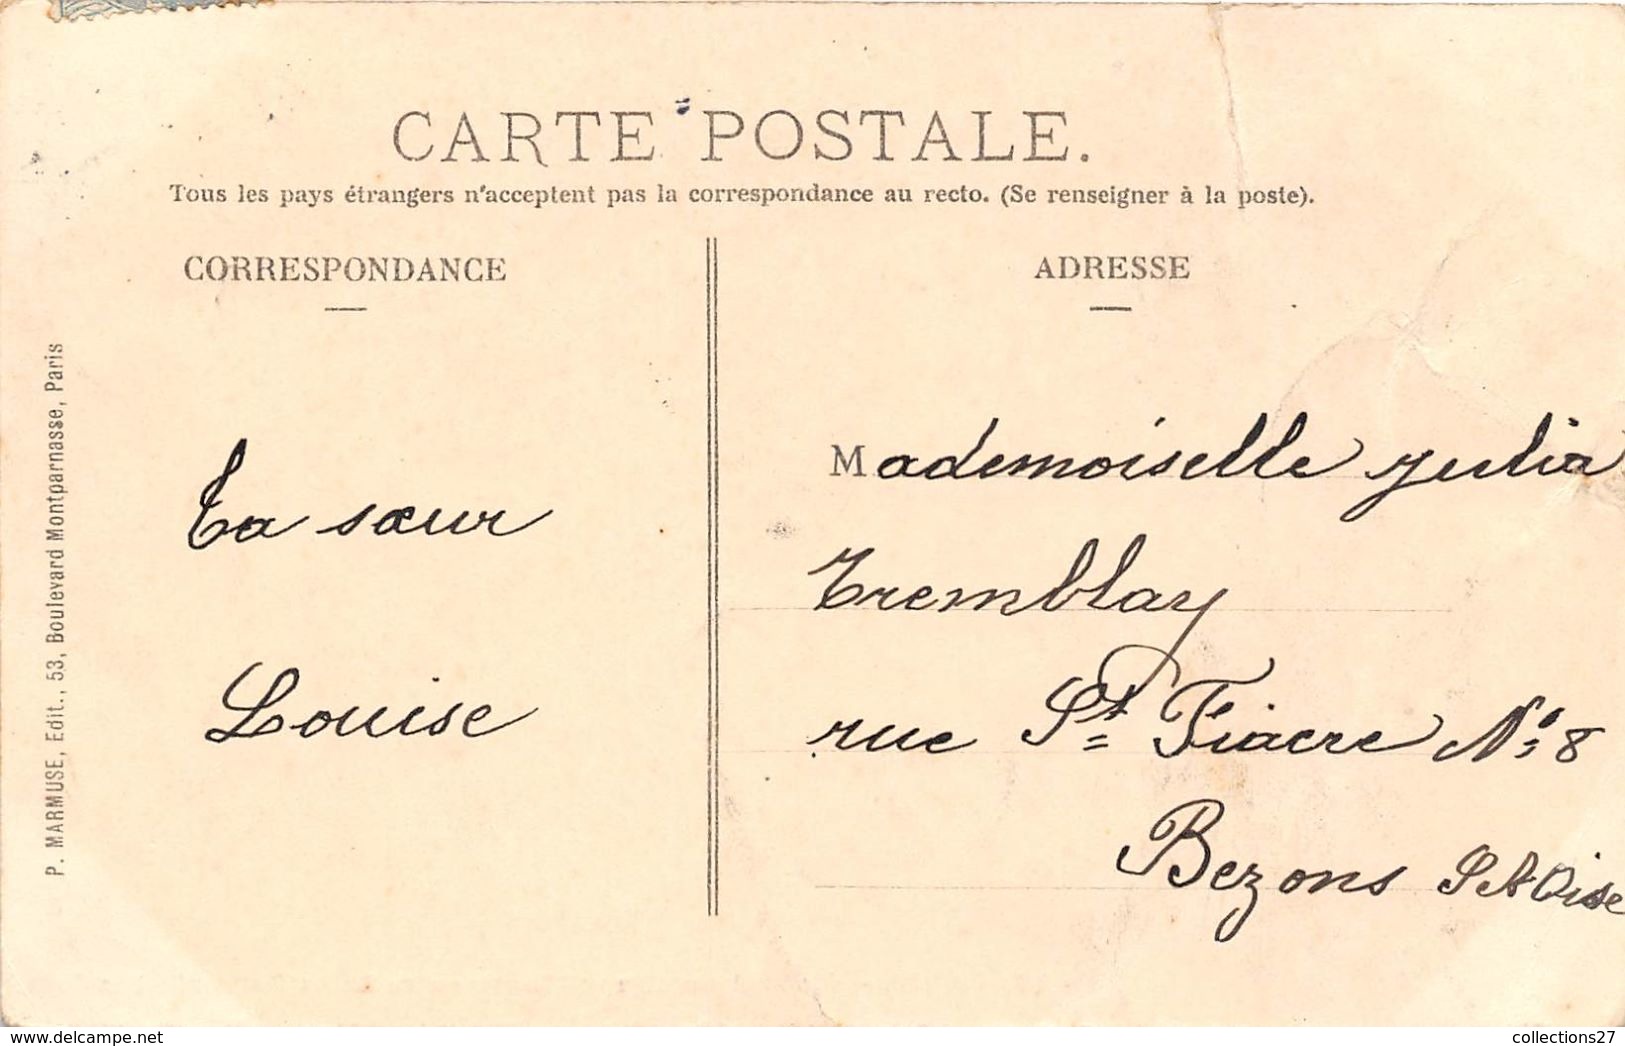 CARTE POSTALE.
Tous les pays étrangers n'acceptent pas la correspondance au recto. (Se renseigner à la poste).
CORRESPONDANCE
ADRESSE
P. MARMUSE, Edit., 53, Boulevard Montparnasse, Paris
Ta sœur
Louise
Mademoiselle Julia
Tremblay
rue St Fiacre No 8
Bezons S et Oise
www.delcampe.net
collections27